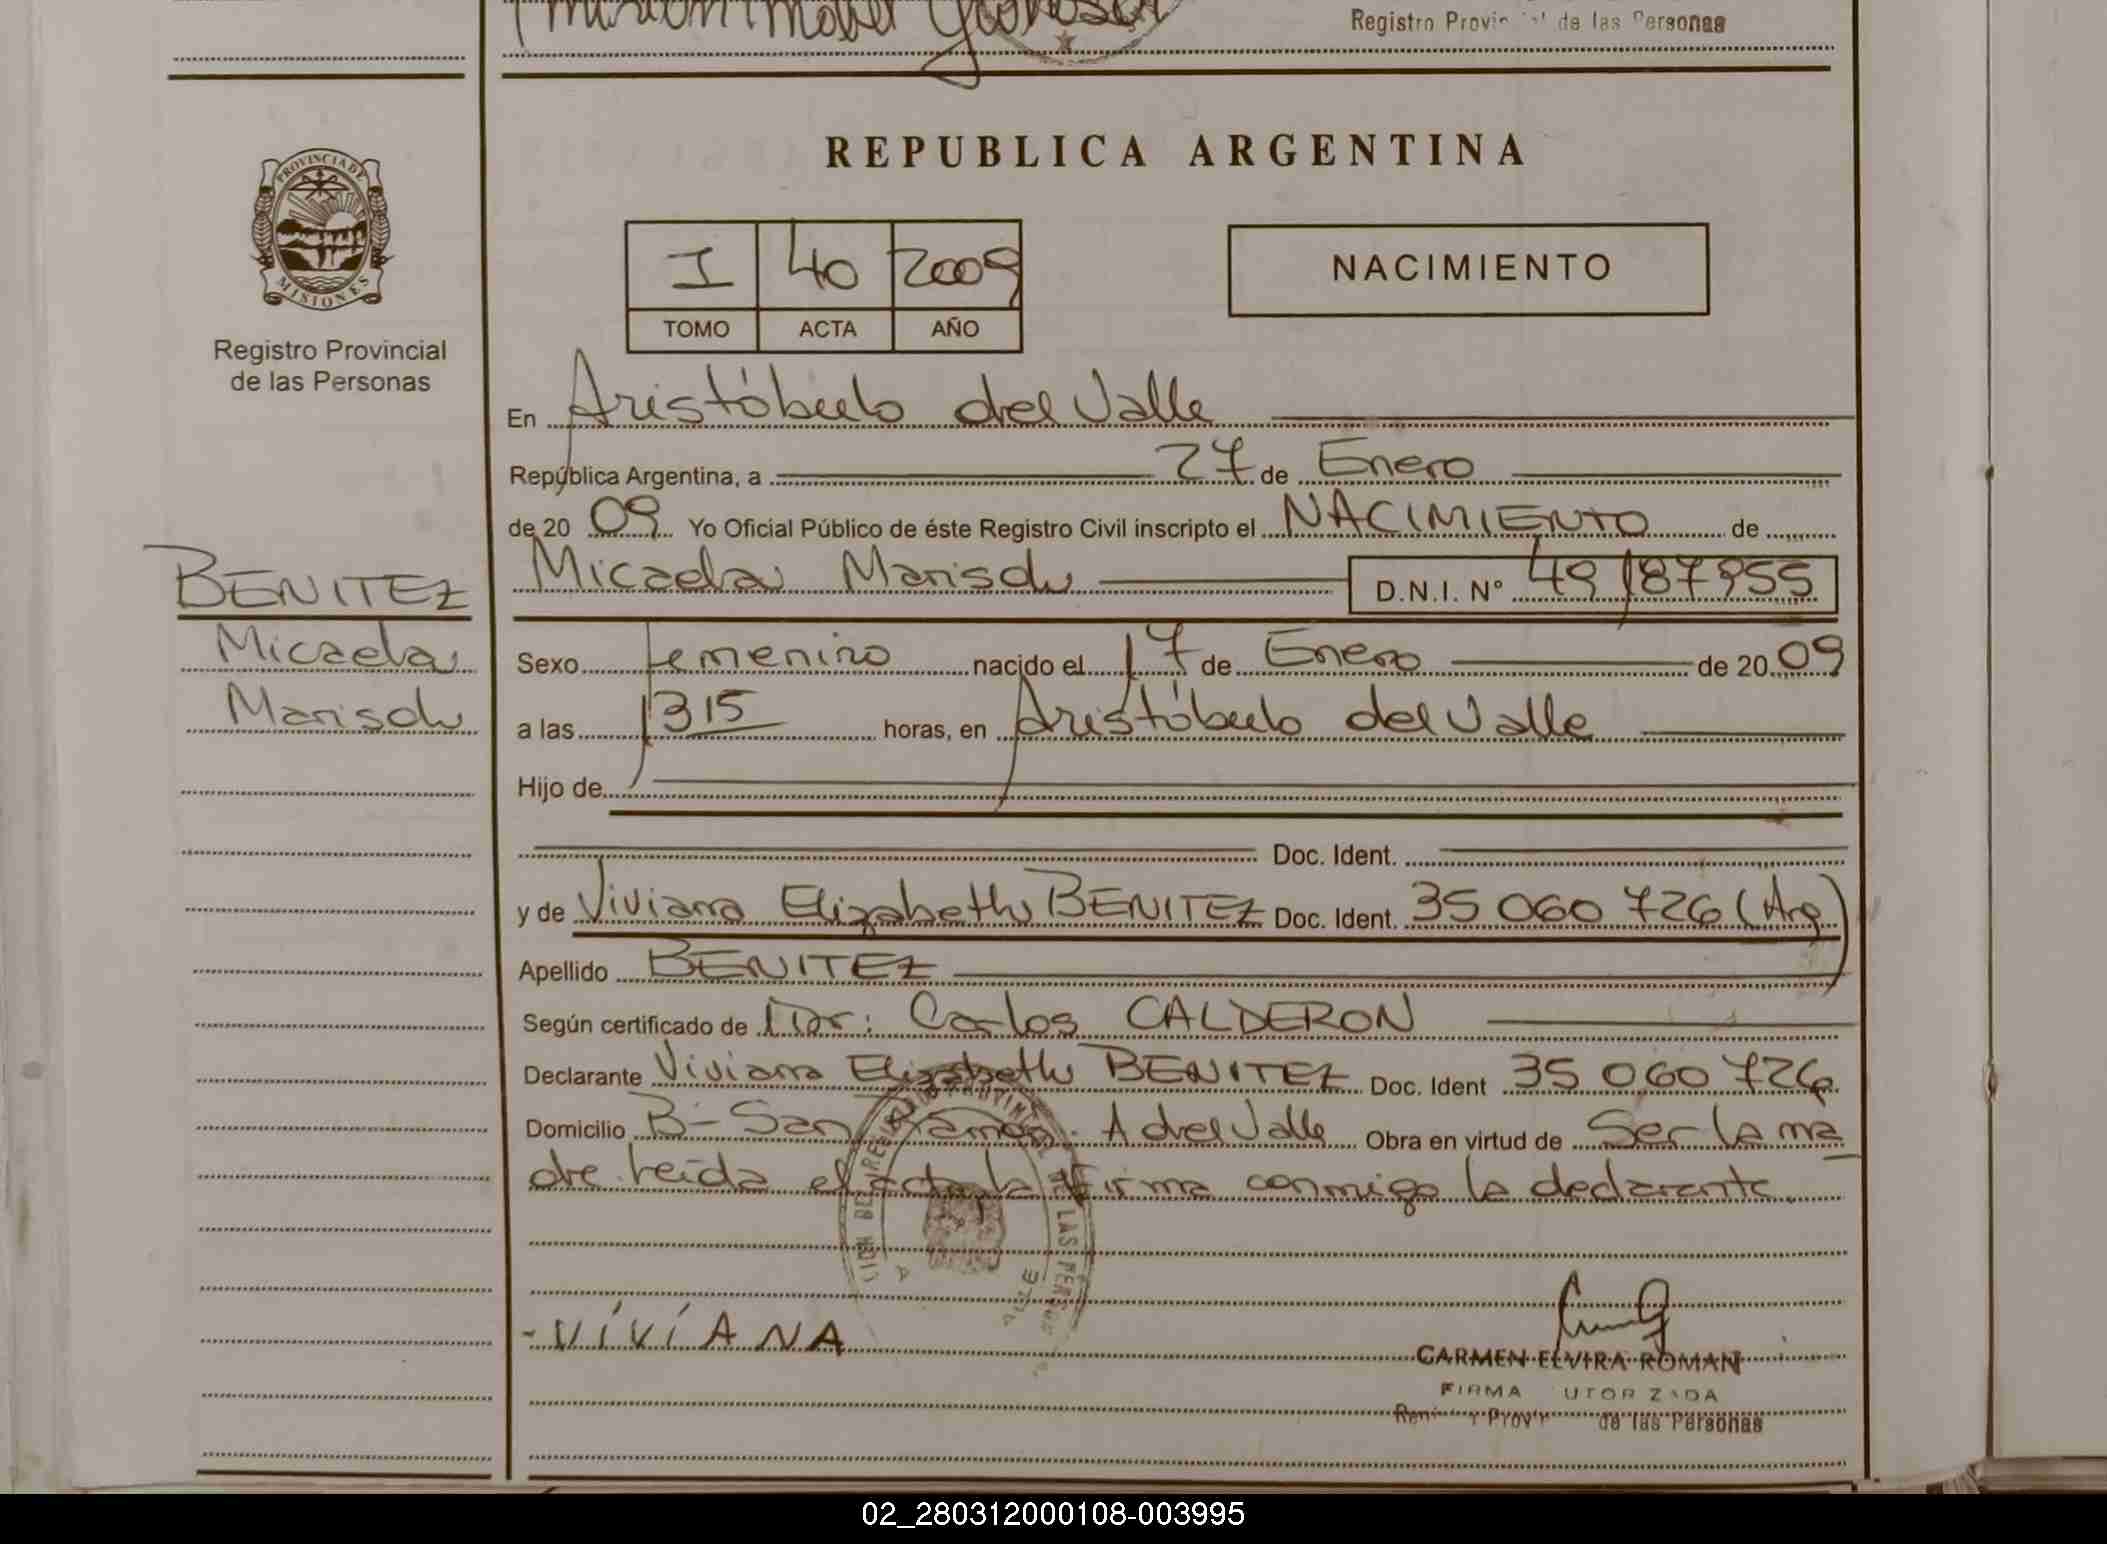 Registro Provincial de las Personas
REPUBLICA ARGENTINA
PROVINCIA DE
MISIONES
Registro Provincial
de las Personas
I 40 2009
TOMO ACTA AÑO
NACIMIENTO
En Aristóbulo del Valle
República Argentina, a 27 de Enero
de 20 09 Yo Oficial Público de éste Registro Civil inscripto el NACIMIENTO de
Micaela Marisol D.N.I. Nº
BENITEZ
Micaela
Marisol
Sexo femenino nacido el 17 de Enero de 20 09
a las 1315 horas, en Aristóbulo del Valle
Hijo de
Doc. Ident.
y de Viviana Elizabeth BENITEZ Doc. Ident. 35 060 726 (Arg)
Apellido BENITEZ
Según certificado de Dr: Carlos CALDERON
Declarante Viviana Elizabeth BENITEZ Doc. Ident 35 060 726
Domicilio Bº San Ramón. A del Valle Obra en virtud de Ser la ma
dre leida el acta la firma conmigo la declarante.
VíVíANA
CARMEN ELVIRA ROMAN
FIRMA
de las Personas
02_280312000108-003995